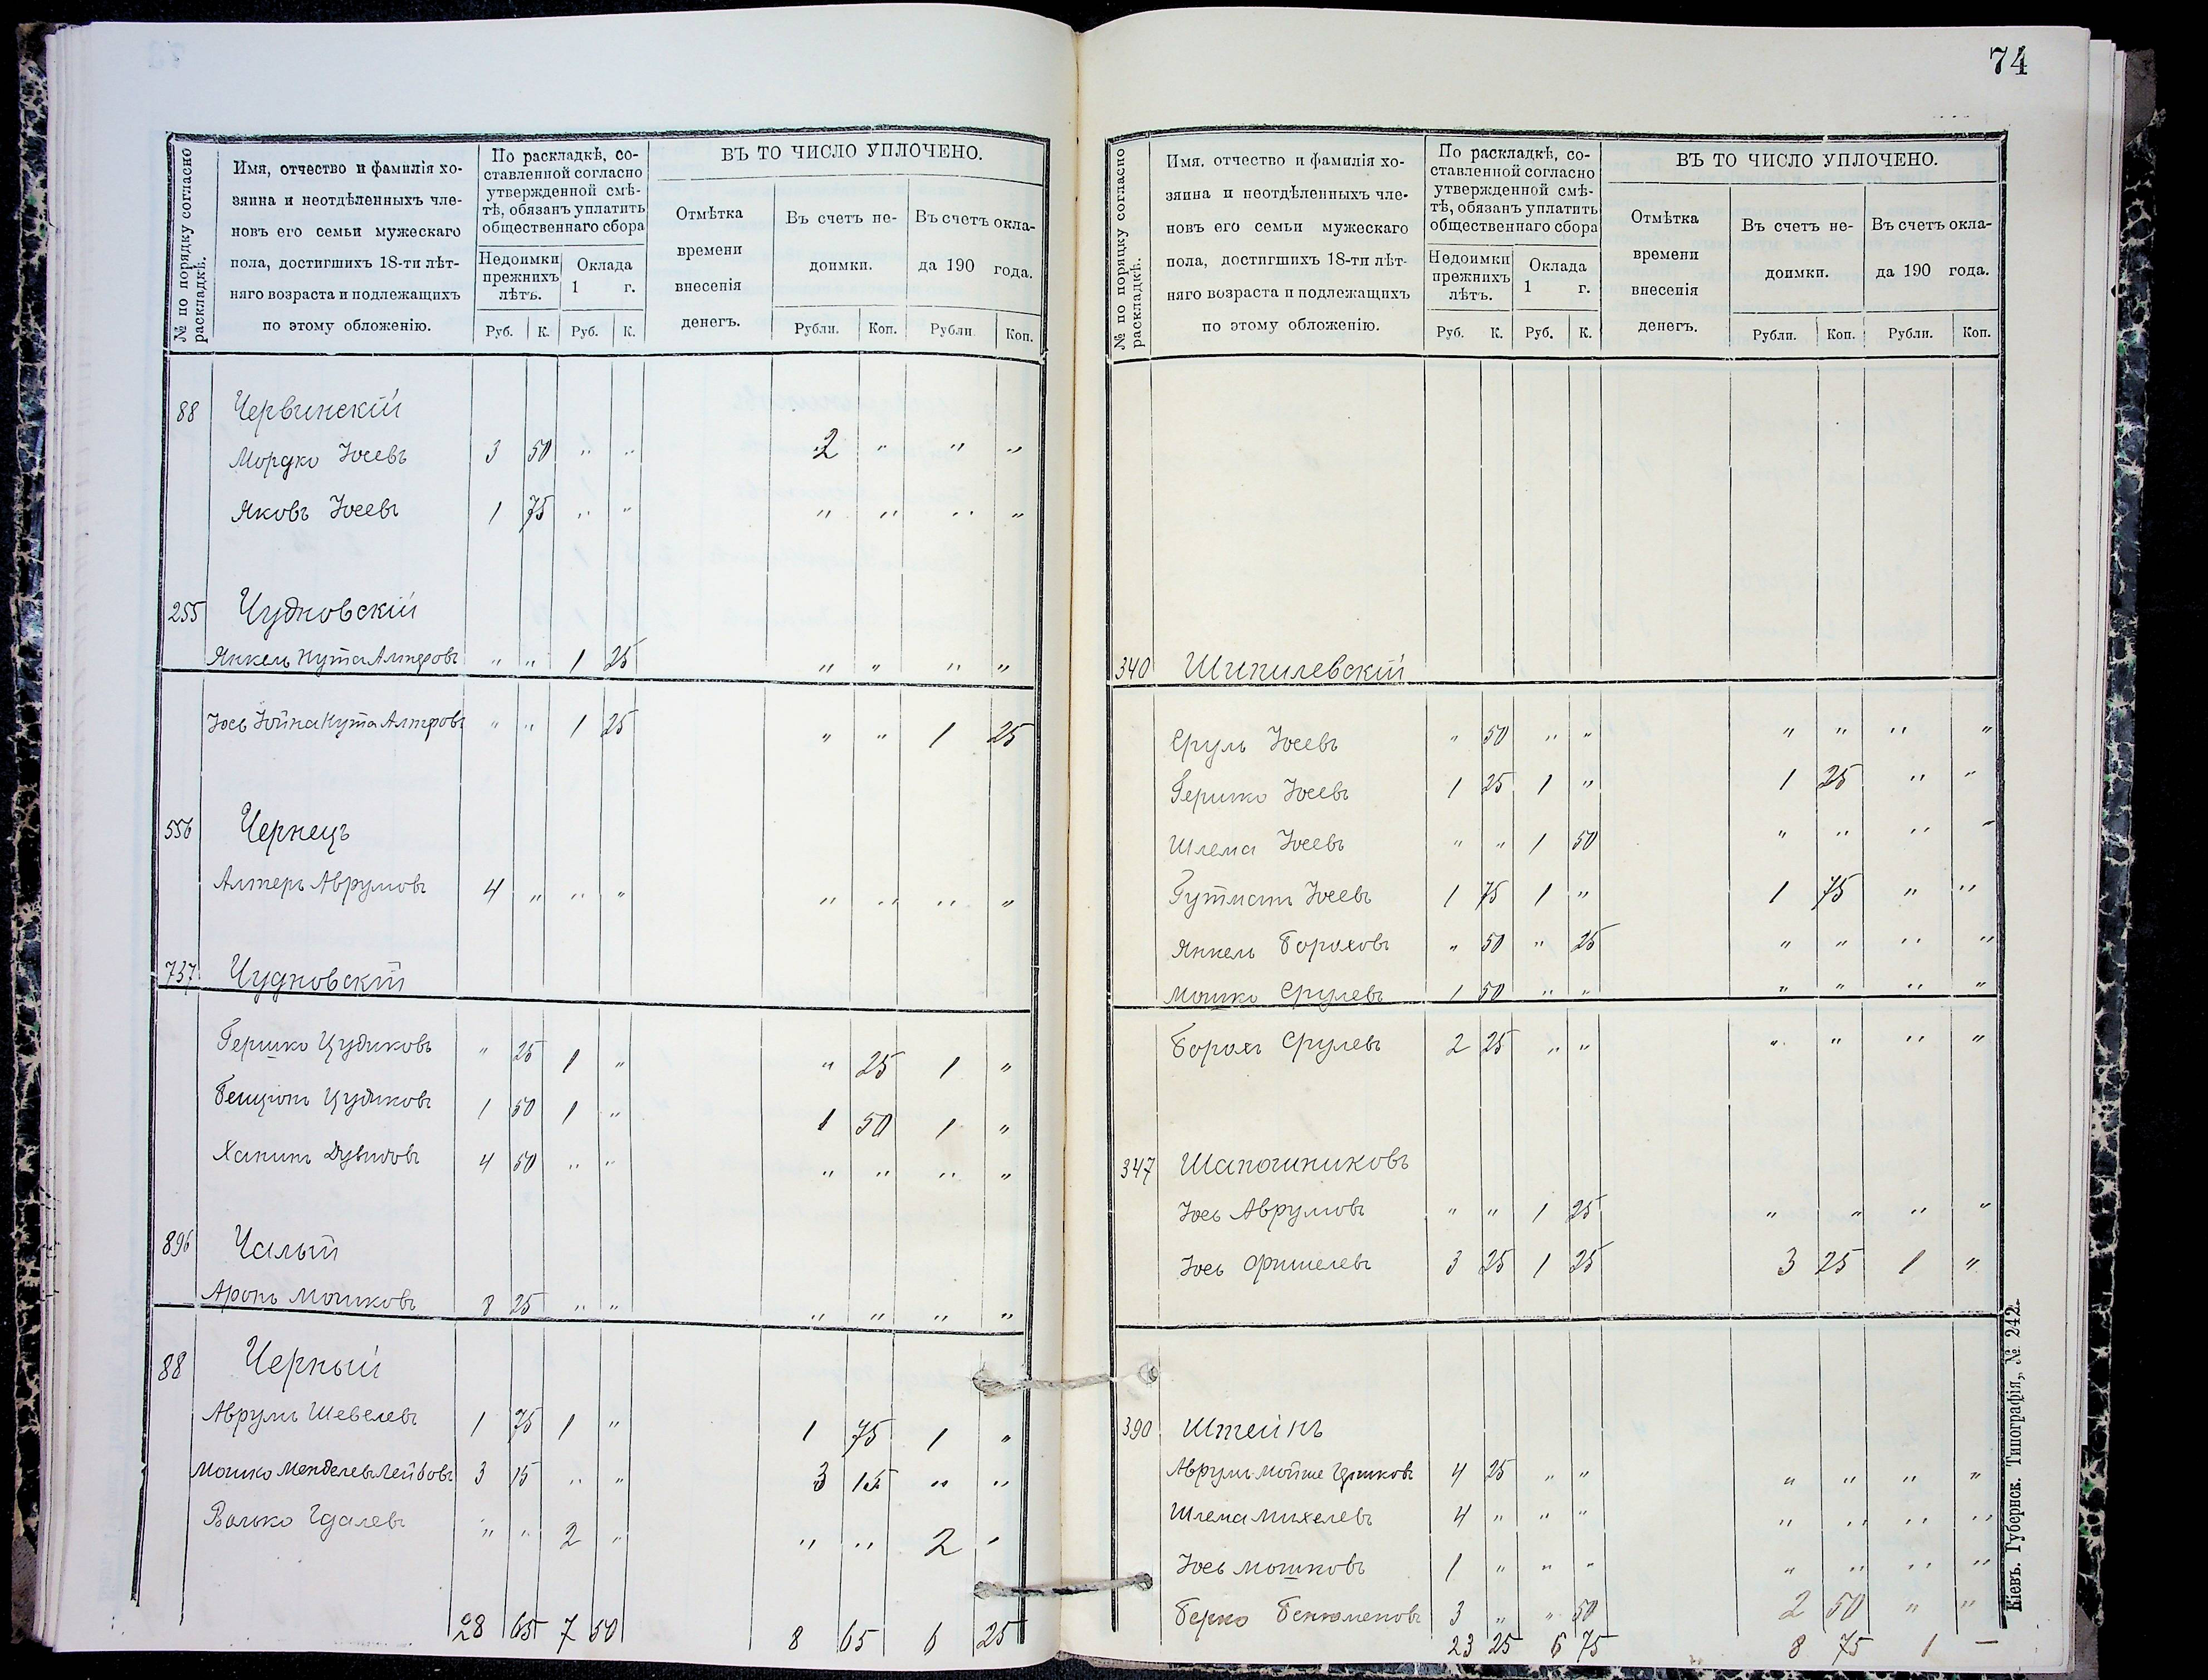 74
№ по порядку согласно раскладкѣ.
Имя, отчество и фамилія хо-
зяина и неотдѣленныхъ чле-
новъ его семьи мужескаго
пола, достигшихъ 18-ти лѣт-
няго возраста и подлежащихъ
по этому обложенію.
По раскладкѣ, со-
ставленной согласно
утвержденной смѣ-
тѣ, обязанъ уплатить
общественнаго сбора
Недоимки
прежнихъ
лѣтъ.
Оклада
1 г.
Руб. К. Руб. К.
ВЪ ТО ЧИСЛО УПЛОЧЕНО.
Отмѣтка
времени
внесенія
денегъ.
Въ счетъ не-
доимки.
Въ счетъ окла-
да 190 года.
Рубли. Коп. Рубли. Коп.
88 Червинскій
Мордко Іосевъ 3 50 " " 2 " " "
Яковъ Іосевъ 1 75 " " " " " "
255 Чудновскій
Янкель Нута Алтеровъ " " 1 25 " " " "
Іось Іойна Нута Алтеровъ " " 1 25 " " 1 25
556 Чернецъ
Алтеръ Аврумовъ 4 " " " " " " "
737 Чудновскій
Гершко Цудиковъ " 25 1 " " 25 1 "
Бенціонъ Цудиковъ 1 50 1 " 1 50 1 "
Ханинъ Дувидовъ 4 50 " " " " " "
896 Чалый
Аронъ Мошковъ 8 25 " " " " " "
88 Черный
Аврумъ Шевелевъ 1 75 1 " 1 75 1 "
Мошко Менделевъ Лейбовъ 3 15 " " 3 15 " "
Волько Гдалевъ " " 2 " " " 2 "
28 65 7 50 8 65 6 25
№ по порядку согласно раскладкѣ.
Имя, отчество и фамилія хо-
зяина и неотдѣленныхъ чле-
новъ его семьи мужескаго
пола, достигшихъ 18-ти лѣт-
няго возраста и подлежащихъ
по этому обложенію.
По раскладкѣ, со-
ставленной согласно
утвержденной смѣ-
тѣ, обязанъ уплатить
общественнаго сбора
Недоимки
прежнихъ
лѣтъ.
Оклада
1 г.
Руб. К. Руб. К.
ВЪ ТО ЧИСЛО УПЛОЧЕНО.
Отмѣтка
времени
внесенія
денегъ.
Въ счетъ не-
доимки.
Въ счетъ окла-
да 190 года.
Рубли. Коп. Рубли. Коп.
340 Шипилевскій
Сруль Іосевъ " 50 " " " " " "
Гершко Іосевъ 1 25 1 " 1 25 " "
Шлема Іосевъ " " 1 50 " " " "
Гутманъ Іосевъ 1 75 1 " 1 75 " "
Янкель Бороховъ " 50 " 25 " " " "
Мошко Срулевъ 1 50 " " " " " "
Борохъ Срулевъ 2 25 " " " " " "
347 Шапошниковъ
Іось Аврумовъ " " 1 25 " " " "
Іось Фишелевъ 3 25 1 25 3 25 1 "
390 Штейнъ
Аврумъ Мойше 4 25 " " " " " "
Шлема Михелевъ 4 " " " " " " "
Іось Мошковъ 1 " " " " " " "
Берко Бенюменовъ 3 " " 50 2 50 " "
23 25 6 75 8 75 1 —
Кіевъ. Губернск. Типографія, № 242.